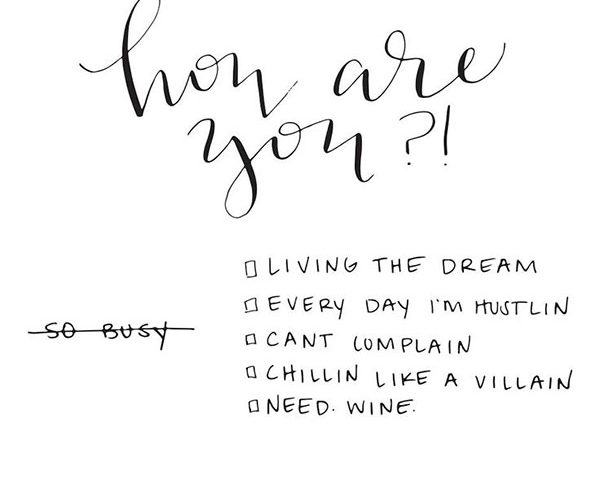 how are
you?!
LIVING THE DREAM
EVERY DAY I'M HUSTLIN
SO BUSY
CANT COMPLAIN
CHILLIN LIKE A VILLAIN
NEED. WINE.